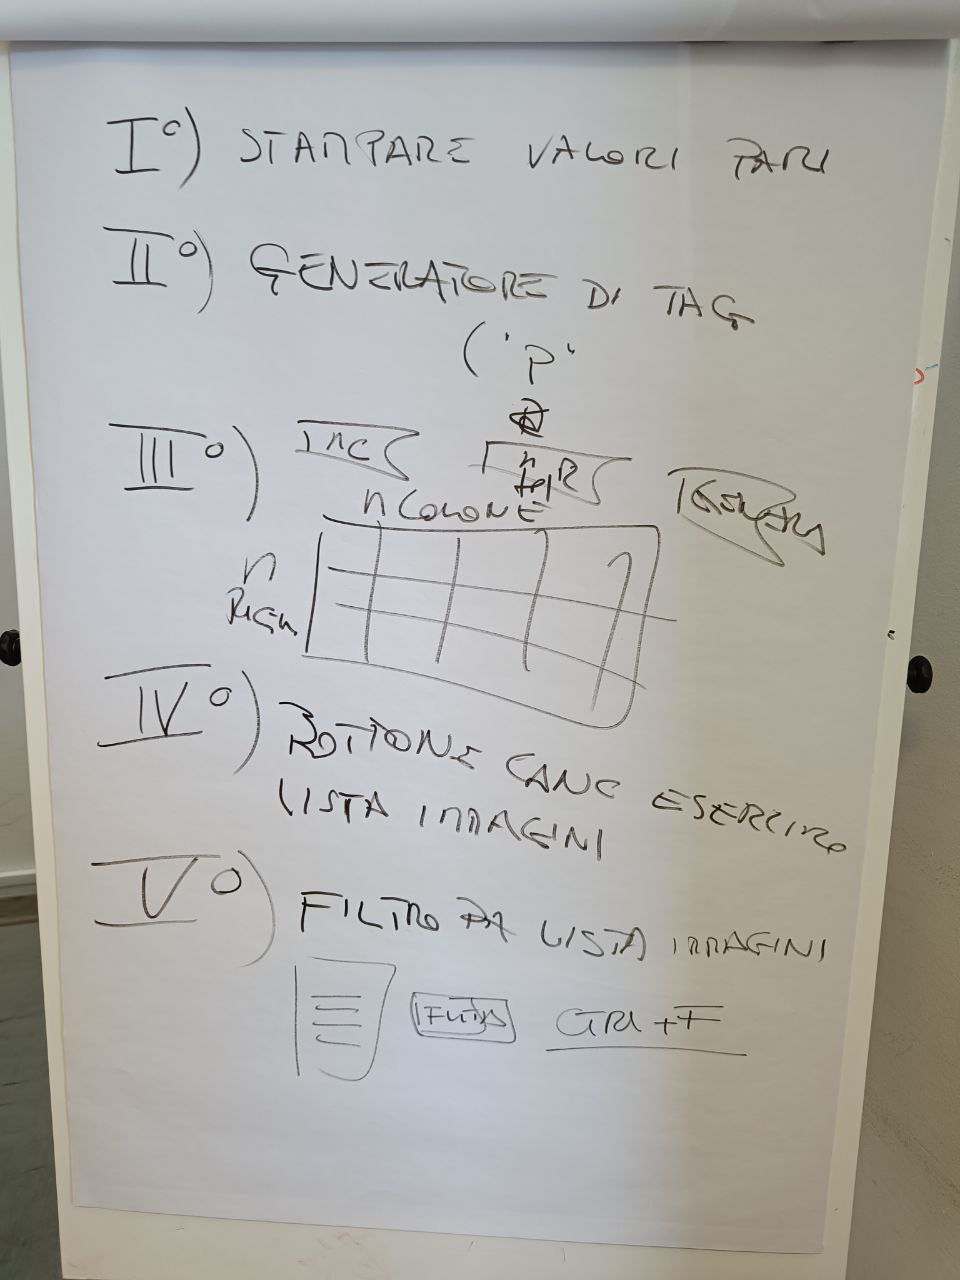 I°) STAMPARE VALORI PARI
II°) GENERATORE DI TAG
('P'
III°)
n COLONE
n
RIGHE
IV°) BOTTONE CANC ESERCIZIO
LISTA IMMAGINI
V°) FILTRO DA LISTA IMMAGINI
FILTRA CTRL+F